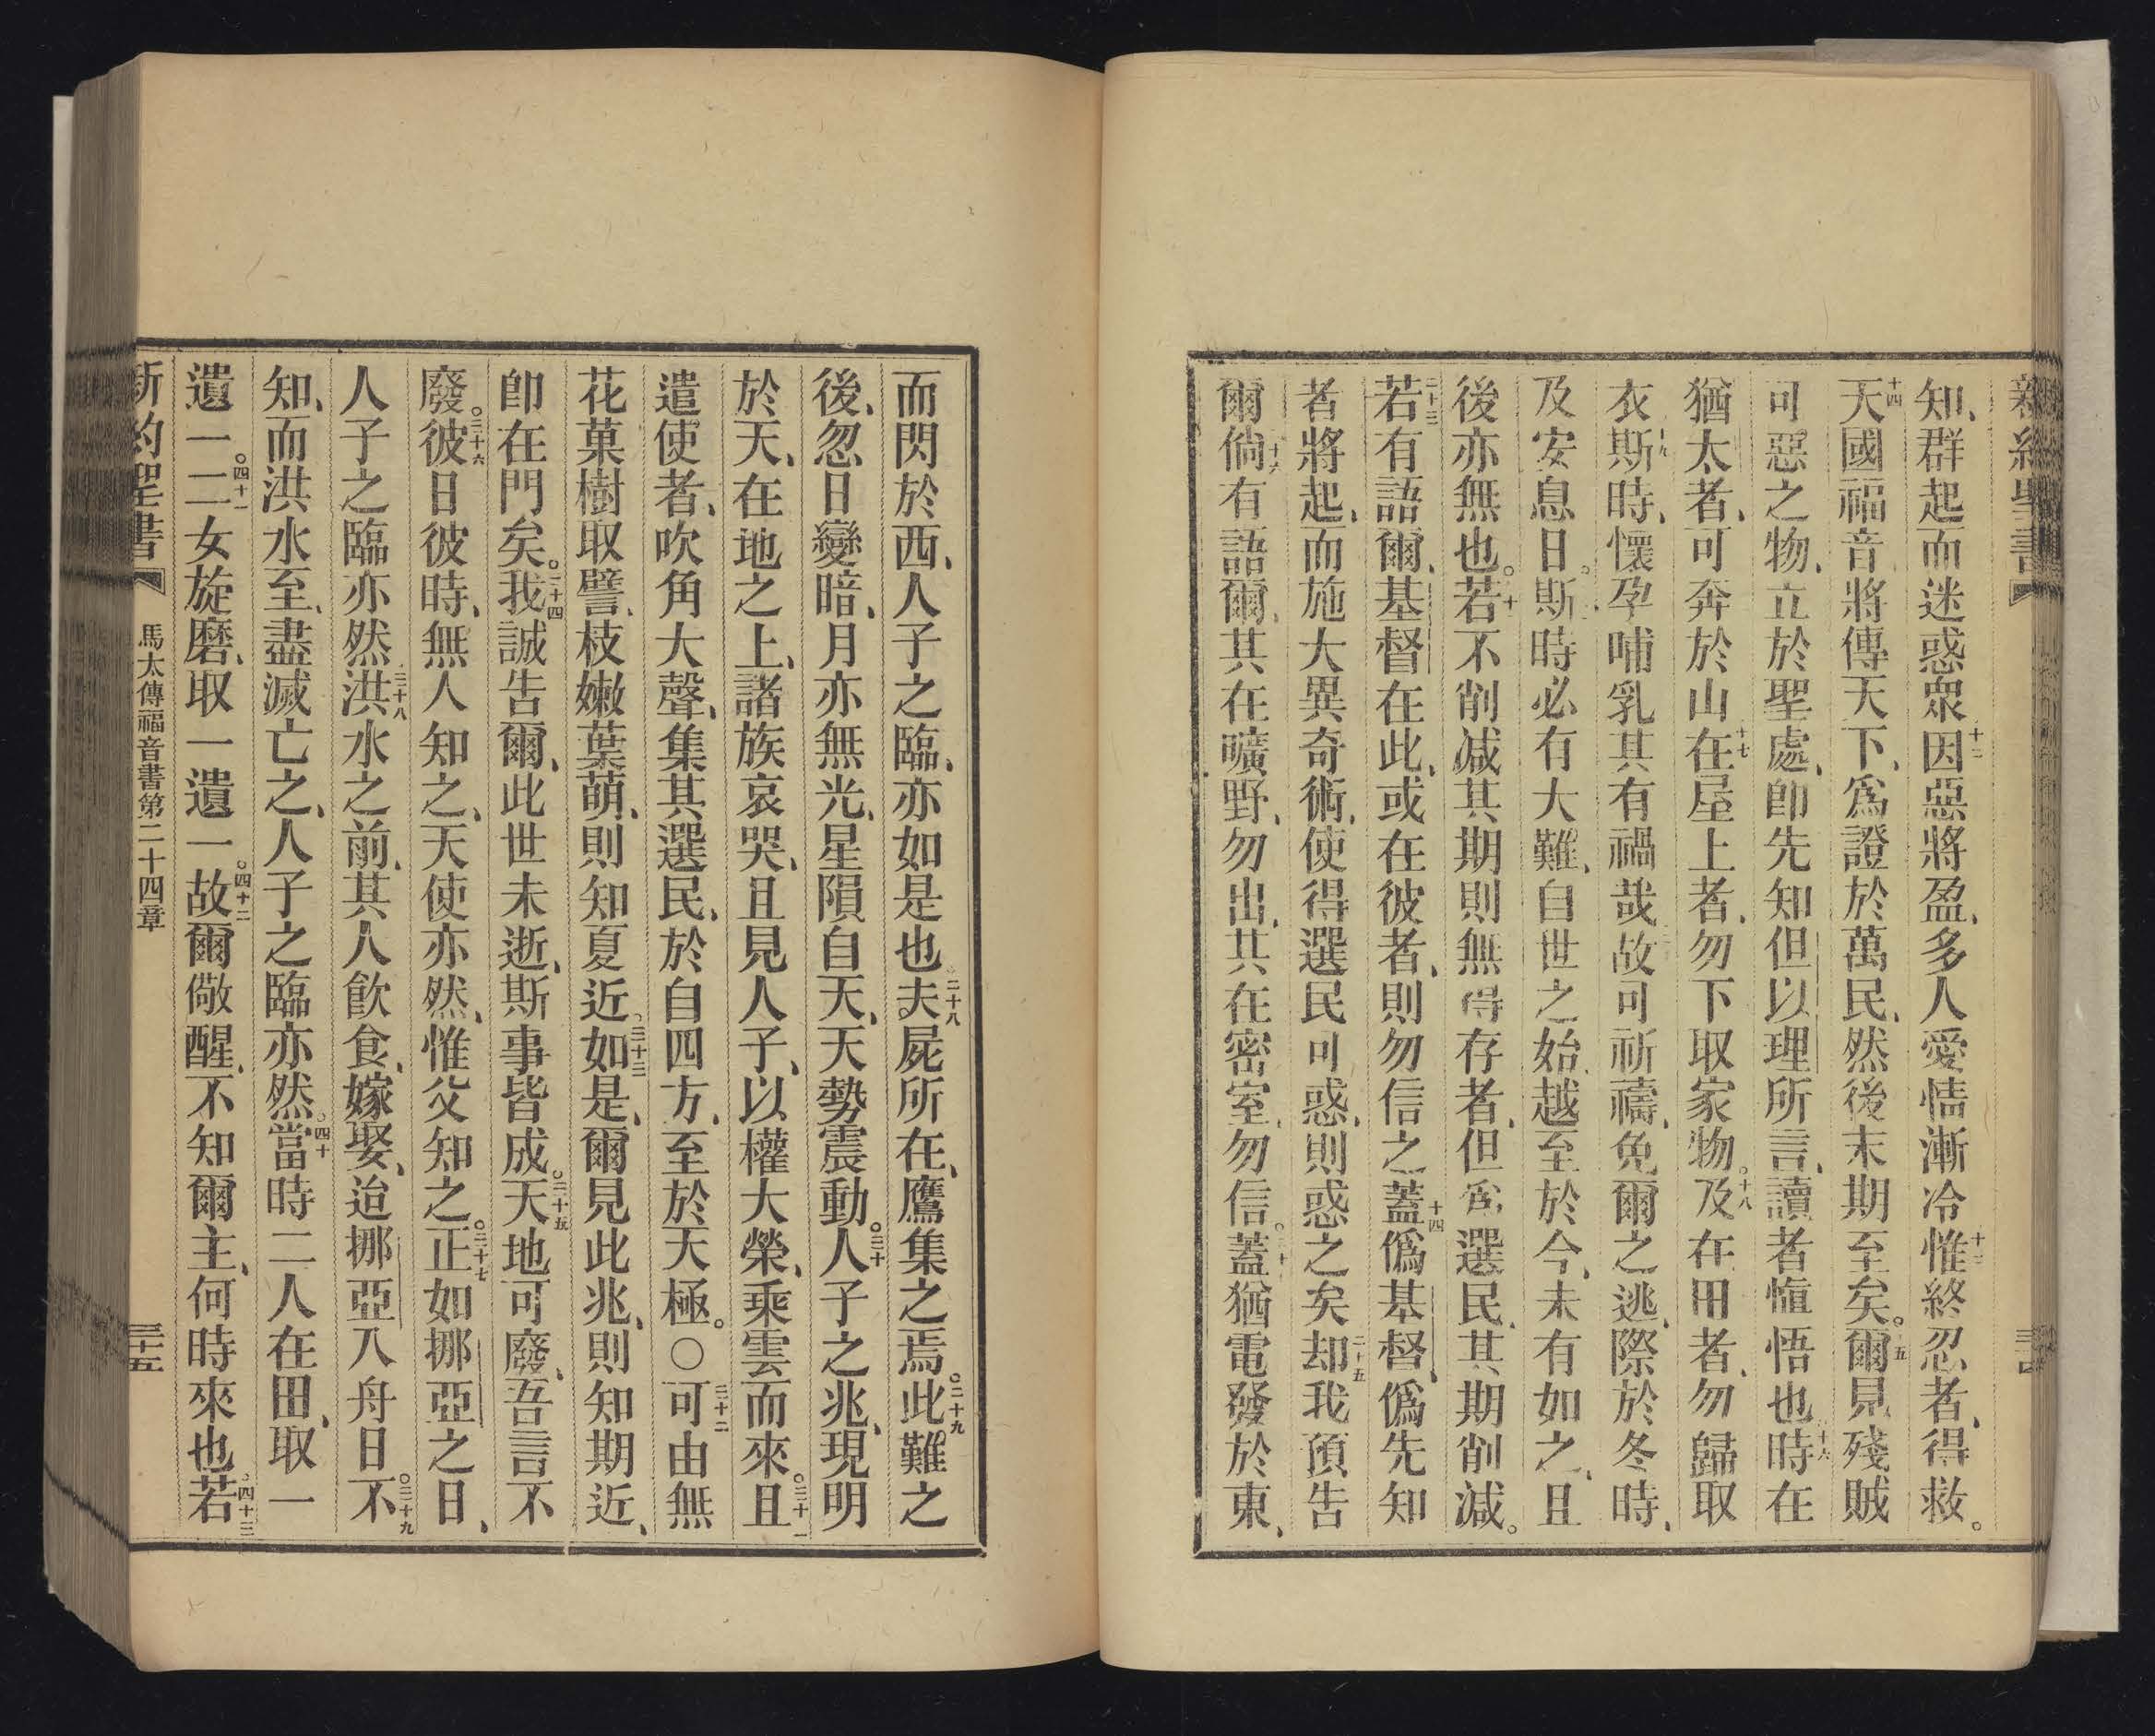 新約聖書
知、群起而迷惑衆、十二因惡將盈、多人愛情漸冷、十三惟終忍者、得救。
十四天國福音、將傳天下、爲證於萬民、然後末期至矣。十五爾見殘賊
可惡之物、立於聖處、卽先知但以理所言、讀者愼悟也、十六時在
猶太者、可奔於山、十七在屋上者、勿下取家物。十八及在田者、勿歸取
衣、十九斯時、懷孕哺乳其有禍哉、故可祈禱、免爾之逃、際於冬時、
及安息日。斯時必有大難、自世之始、越至於今、未有如之、且
後亦無也。若不削減其期、則無得存者、但爲選民、其期削減。
二十三若有語爾、基督在此、或在彼者、則勿信之、蓋僞基督、僞先知
者將起、而施大異奇術、使得選民可惑、則惑之矣、二十五却我預告
爾、倘有語爾、其在曠野、勿出、其在密室、勿信。蓋猶電發於東、
而閃於西、人子之臨、亦如是也。二十八夫屍所在、鷹集之焉。二十九此難之
後、忽日變暗、月亦無光、星隕自天、天勢震動。三十人子之兆、現明
於天、在地之上、諸族哀哭、且見人子、以權大榮、乘雲而來。三十一且
遣使者、吹角大聲、集其選民、於自四方、至於天極。○三十二可由無
花菓樹取譬、枝嫩葉萌、則知夏近。三十三如是、爾見此兆、則知期近、
卽在門矣。三十四我誠告爾、此世未逝、斯事皆成。三十五天地可廢、吾言不
廢。三十六彼日彼時、無人知之、天使亦然、惟父知之。三十七正如挪亞之日、
人子之臨亦然、三十八洪水之前、其人飮食、嫁娶、迨挪亞入舟日。三十九不
知、而洪水至、盡滅亡之、人子之臨亦然。四十當時二人在田、取一
遺一。四十一二女旋磨、取一遺一。四十二故爾儆醒、不知爾主、何時來也。四十三若
新約聖書 馬太傳福音書第二十四章 三十五